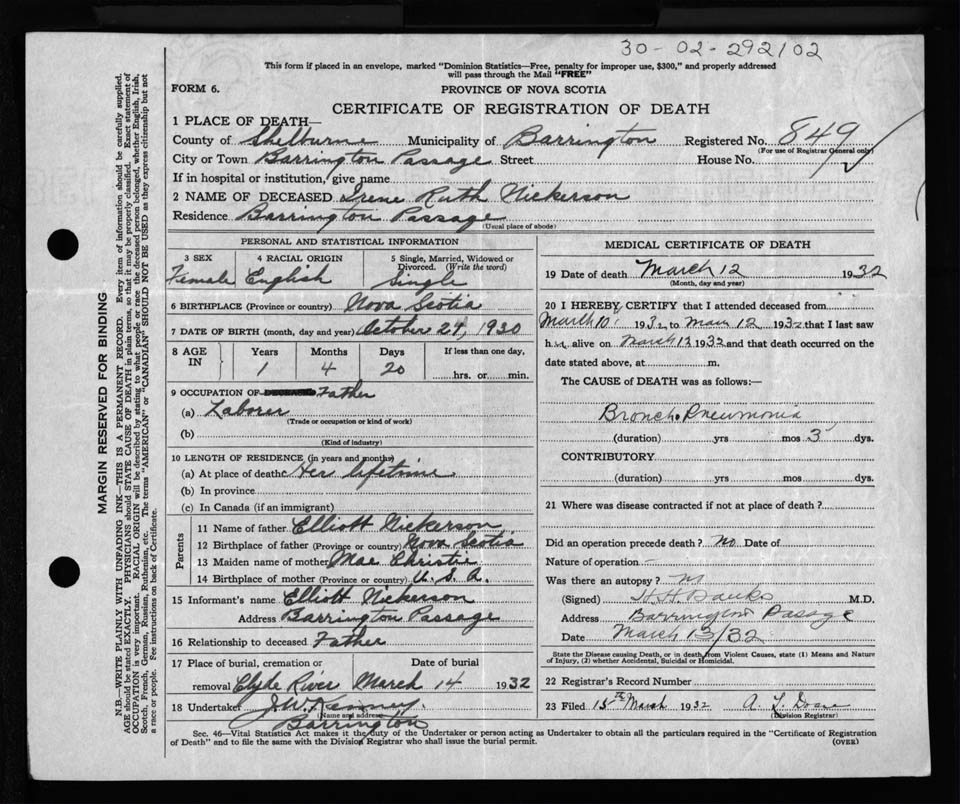 30-02-292102
This form if placed in an envelope, marked "Dominion Statistics—Free, penalty for improper use, $300," and properly addressed
will pass through the Mail "FREE"
FORM 6.
PROVINCE OF NOVA SCOTIA
CERTIFICATE OF REGISTRATION OF DEATH
1 PLACE OF DEATH—
County of Shelburne Municipality of Barrington Registered No. 849
(For use of Registrar General only)
City or Town Barrington Passage Street House No.
If in hospital or institution, give name
2 NAME OF DECEASED Irene Ruth Nickerson
Residence Barrington Passage
(Usual place of abode)
PERSONAL AND STATISTICAL INFORMATION
3 SEX 4 RACIAL ORIGIN 5 Single, Married, Widowed or
Divorced. (Write the word)
Female English Single
6 BIRTHPLACE (Province or country) Nova Scotia
7 DATE OF BIRTH (month, day and year) October 24, 1930
8 AGE IN Years Months Days If less than one day,
1 4 20 hrs. or min.
9 OCCUPATION OF DECEASED Father
(a) Laborer
(Trade or occupation or kind of work)
(b)
(Kind of industry)
10 LENGTH OF RESIDENCE (in years and months)
(a) At place of death Her lifetime
(b) In province
(c) In Canada (if an immigrant)
Parents
11 Name of father Elliott Nickerson
12 Birthplace of father (Province or country) Nova Scotia
13 Maiden name of mother Mae Christie
14 Birthplace of mother (Province or country) U. S. A.
15 Informant's name Elliott Nickerson
Address Barrington Passage
16 Relationship to deceased Father
17 Place of burial, cremation or Date of burial
removal Clyde River March 14 1932
18 Undertaker J.W. Kenney
(Name and address)
Barrington
MEDICAL CERTIFICATE OF DEATH
19 Date of death March 12 1932
(Month, day and year)
20 I HEREBY CERTIFY that I attended deceased from
March 10 1932 to Mar 12 1932 that I last saw
her alive on March 12 1932 and that death occurred on the
date stated above, at m.
The CAUSE of DEATH was as follows:—
Broncho Pneumonia
(duration) yrs mos 3 dys.
CONTRIBUTORY
(duration) yrs mos dys.
21 Where was disease contracted if not at place of death?
Did an operation precede death? No Date of
Nature of operation
Was there an autopsy? No
(Signed) H.H. Banks M.D.
Address Barrington Passage
Date March 13/32
State the Disease causing Death, or in death from Violent Causes, state (1) Means and Nature
of Injury, (2) whether Accidental, Suicidal or Homicidal.
22 Registrar's Record Number
23 Filed 15th March 1932 A. L. Doane
(Division Registrar)
Sec. 46—Vital Statistics Act makes it the duty of the Undertaker or person acting as Undertaker to obtain all the particulars required in the "Certificate of Registration
of Death" and to file the same with the Division Registrar who shall issue the burial permit.
(OVER)
MARGIN RESERVED FOR BINDING
N.B.—WRITE PLAINLY WITH UNFADING INK—THIS IS A PERMANENT RECORD. Every item of information should be carefully supplied.
AGE should be stated EXACTLY. PHYSICIANS should STATE CAUSE OF DEATH in plain terms, so that it may be properly classified. Exact statement of
OCCUPATION is very important. RACIAL ORIGIN will be described by stating to what people or race the deceased person belonged, whether English, Irish,
Scotch, French, German, Russian, Ruthenian, etc. The terms "AMERICAN" or "CANADIAN" SHOULD NOT BE USED as they express citizenship but not
a race or people. See instructions on back of Certificate.